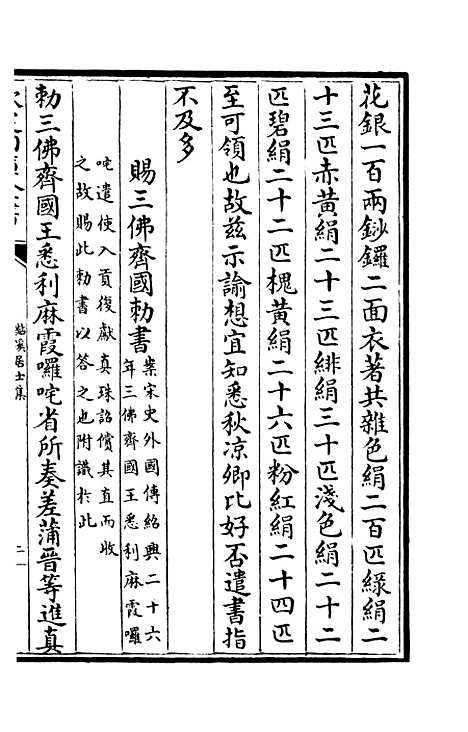 花銀一百兩鈔鑼二面衣著共雜色絹二百匹綠絹二
十三匹赤黃絹二十三匹緋絹三十匹淺色絹二十二
匹碧絹二十二匹槐黃絹二十六匹粉紅絹二十四匹
至可領也故兹示諭想宜知悉秋凉卿比好否遣書指
不及多
賜三佛齊國勅書
案宋史外國傳紹興二十六
年三佛齊國王悉利麻霞囉
咤遣使入貢復獻真珠詔償其直而收
之故賜此勅書以答之也附識於此
勅三佛齊國王悉利麻霞囉咤省所奏差蒲晋等進真